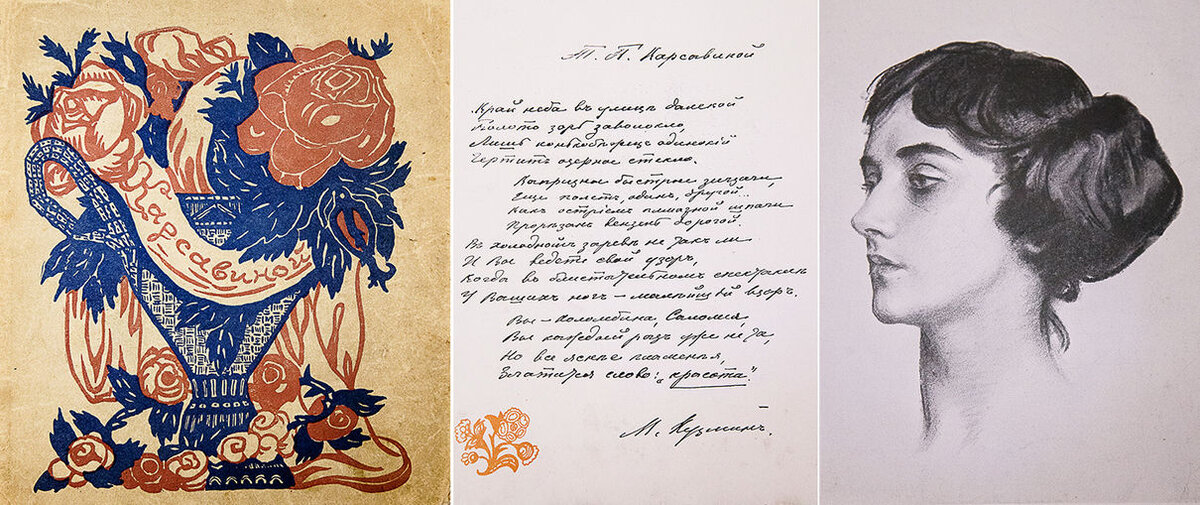 Карсавиной
Т. П. Карсавиной
Край неба въ улицѣ далекой
Болото зорь заволокло,
Лишь конькобѣжецъ одинокій
Чертитъ озерное стекло.
Капризны быстрые зигзаги,
Еще полетъ, одинъ, другой..
Какъ остріемъ алмазной шпаги
Прорѣзанъ вензель дорогой.
Въ холодномъ заревѣ не такъ ли
И Вы ведете свой узоръ,
Когда въ блистательномъ спектаклѣ
У Вашихъ ногъ — малѣйшій взоръ.
Вы – Коломбина, Саломея,
Вы каждый разъ уже не та,
Но все яснѣе пламенѣя,
Златится слово: „красота".
М. Кузминъ.